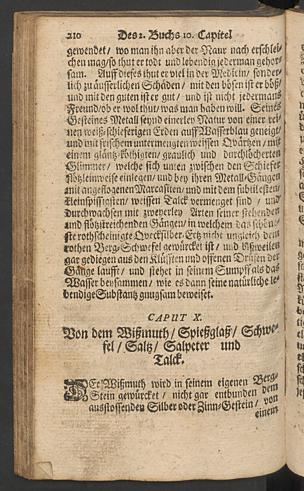 210 Des 2. Buchs 10. Capitel
gewendet / wo man ihn aber der Natur nach erschlei-
chen mag / so thut er todt und lebendig jederman gehor-
sam. Auff dieses thut er viel in der Medicin / sonder-
lich zu äusserlichen Schäden / mit den bösen ist er böß /
und mit den guten ist er gut / und ist nicht jedermans
Freund / ob er wol thut / was man haben will. Seines
Gesteines Metall seynd einerley Natur von einer rei-
nen weiß-schieferigen Erden auff Wasserblau geneigt /
und mit frischem untermengten weissen Quärtzen / mit
einem gläntz-köthigten / graulich und durchlöcherten
Glimmer / welche sich unten zwischen den Schiefer
Flötzweise einlegen / und bey ihren Metall-Gängen
mit angeflogenen Marcasiten / und mit dem subtilesten /
kleinspissigsten / weissen Talck vermenget sind / und
durchwachsen mit zweyerley Arten seiner stehenden
und flötzreichenden Gängen / in welchem das schön-
ste rothscheinigte Quecksilber-Ertz nicht ungleich dem
rothen Berg-Schwefel gewürcket ist / und bißweilen
gar gediegen aus den Klüfften und offenen Drüsen der
Gänge laufft / und stehet in seinem Sumpff als das
Wasser beysammen / wie es dann seine natürliche le-
bendige Substantz gnugsam beweiset.
CAPUT X.
Von dem Wißmuth / Spießglaß / Schwe-
fel / Saltz / Salpeter und
Talck.
DEr Wißmuth wird in seinem eigenen Berg-
Stein gewürcket / nicht gar entbunden dem
ausstossenden Silber oder Zinn-Gestein / von
einem